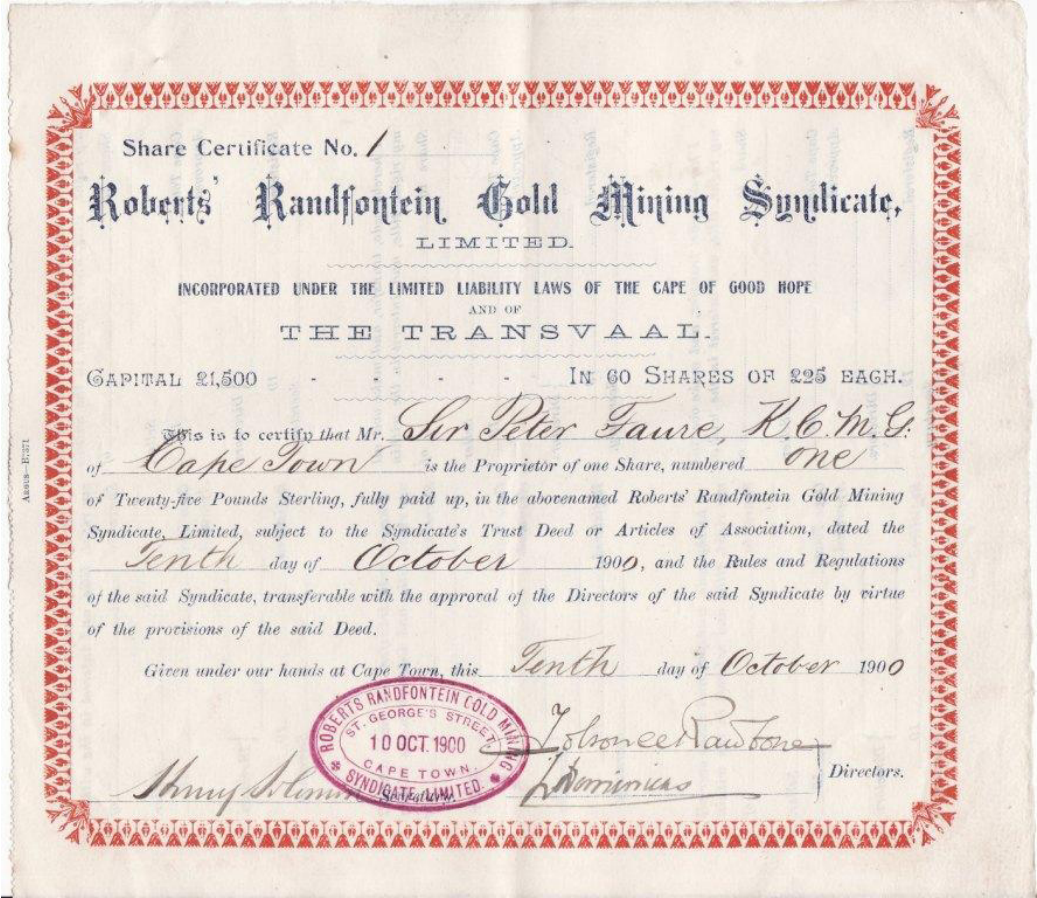 Share Certificate No. 1
Roberts' Randfontein Gold Mining Syndicate,
LIMITED.
INCORPORATED UNDER THE LIMITED LIABILITY LAWS OF THE CAPE OF GOOD HOPE
AND OF
THE TRANSVAAL.
CAPITAL £1,500 - - - - IN 60 SHARES OF £25 EACH.
This is to certify that Mr. Sir Peter Faure, K.C.M.G.
of Cape Town is the Proprietor of one Share, numbered one
of Twenty-five Pounds Sterling, fully paid up, in the abovenamed Roberts' Randfontein Gold Mining
Syndicate, Limited, subject to the Syndicate's Trust Deed or Articles of Association, dated the
Tenth day of October 1900, and the Rules and Regulations
of the said Syndicate, transferable with the approval of the Directors of the said Syndicate by virtue
of the provisions of the said Deed.
Given under our hands at Cape Town, this Tenth day of October 1900
ROBERTS RANDFONTEIN GOLD MINING
ST. GEORGE'S STREET
10 OCT. 1900
CAPE TOWN.
SYNDICATE LIMITED.
Secretary.
Directors.